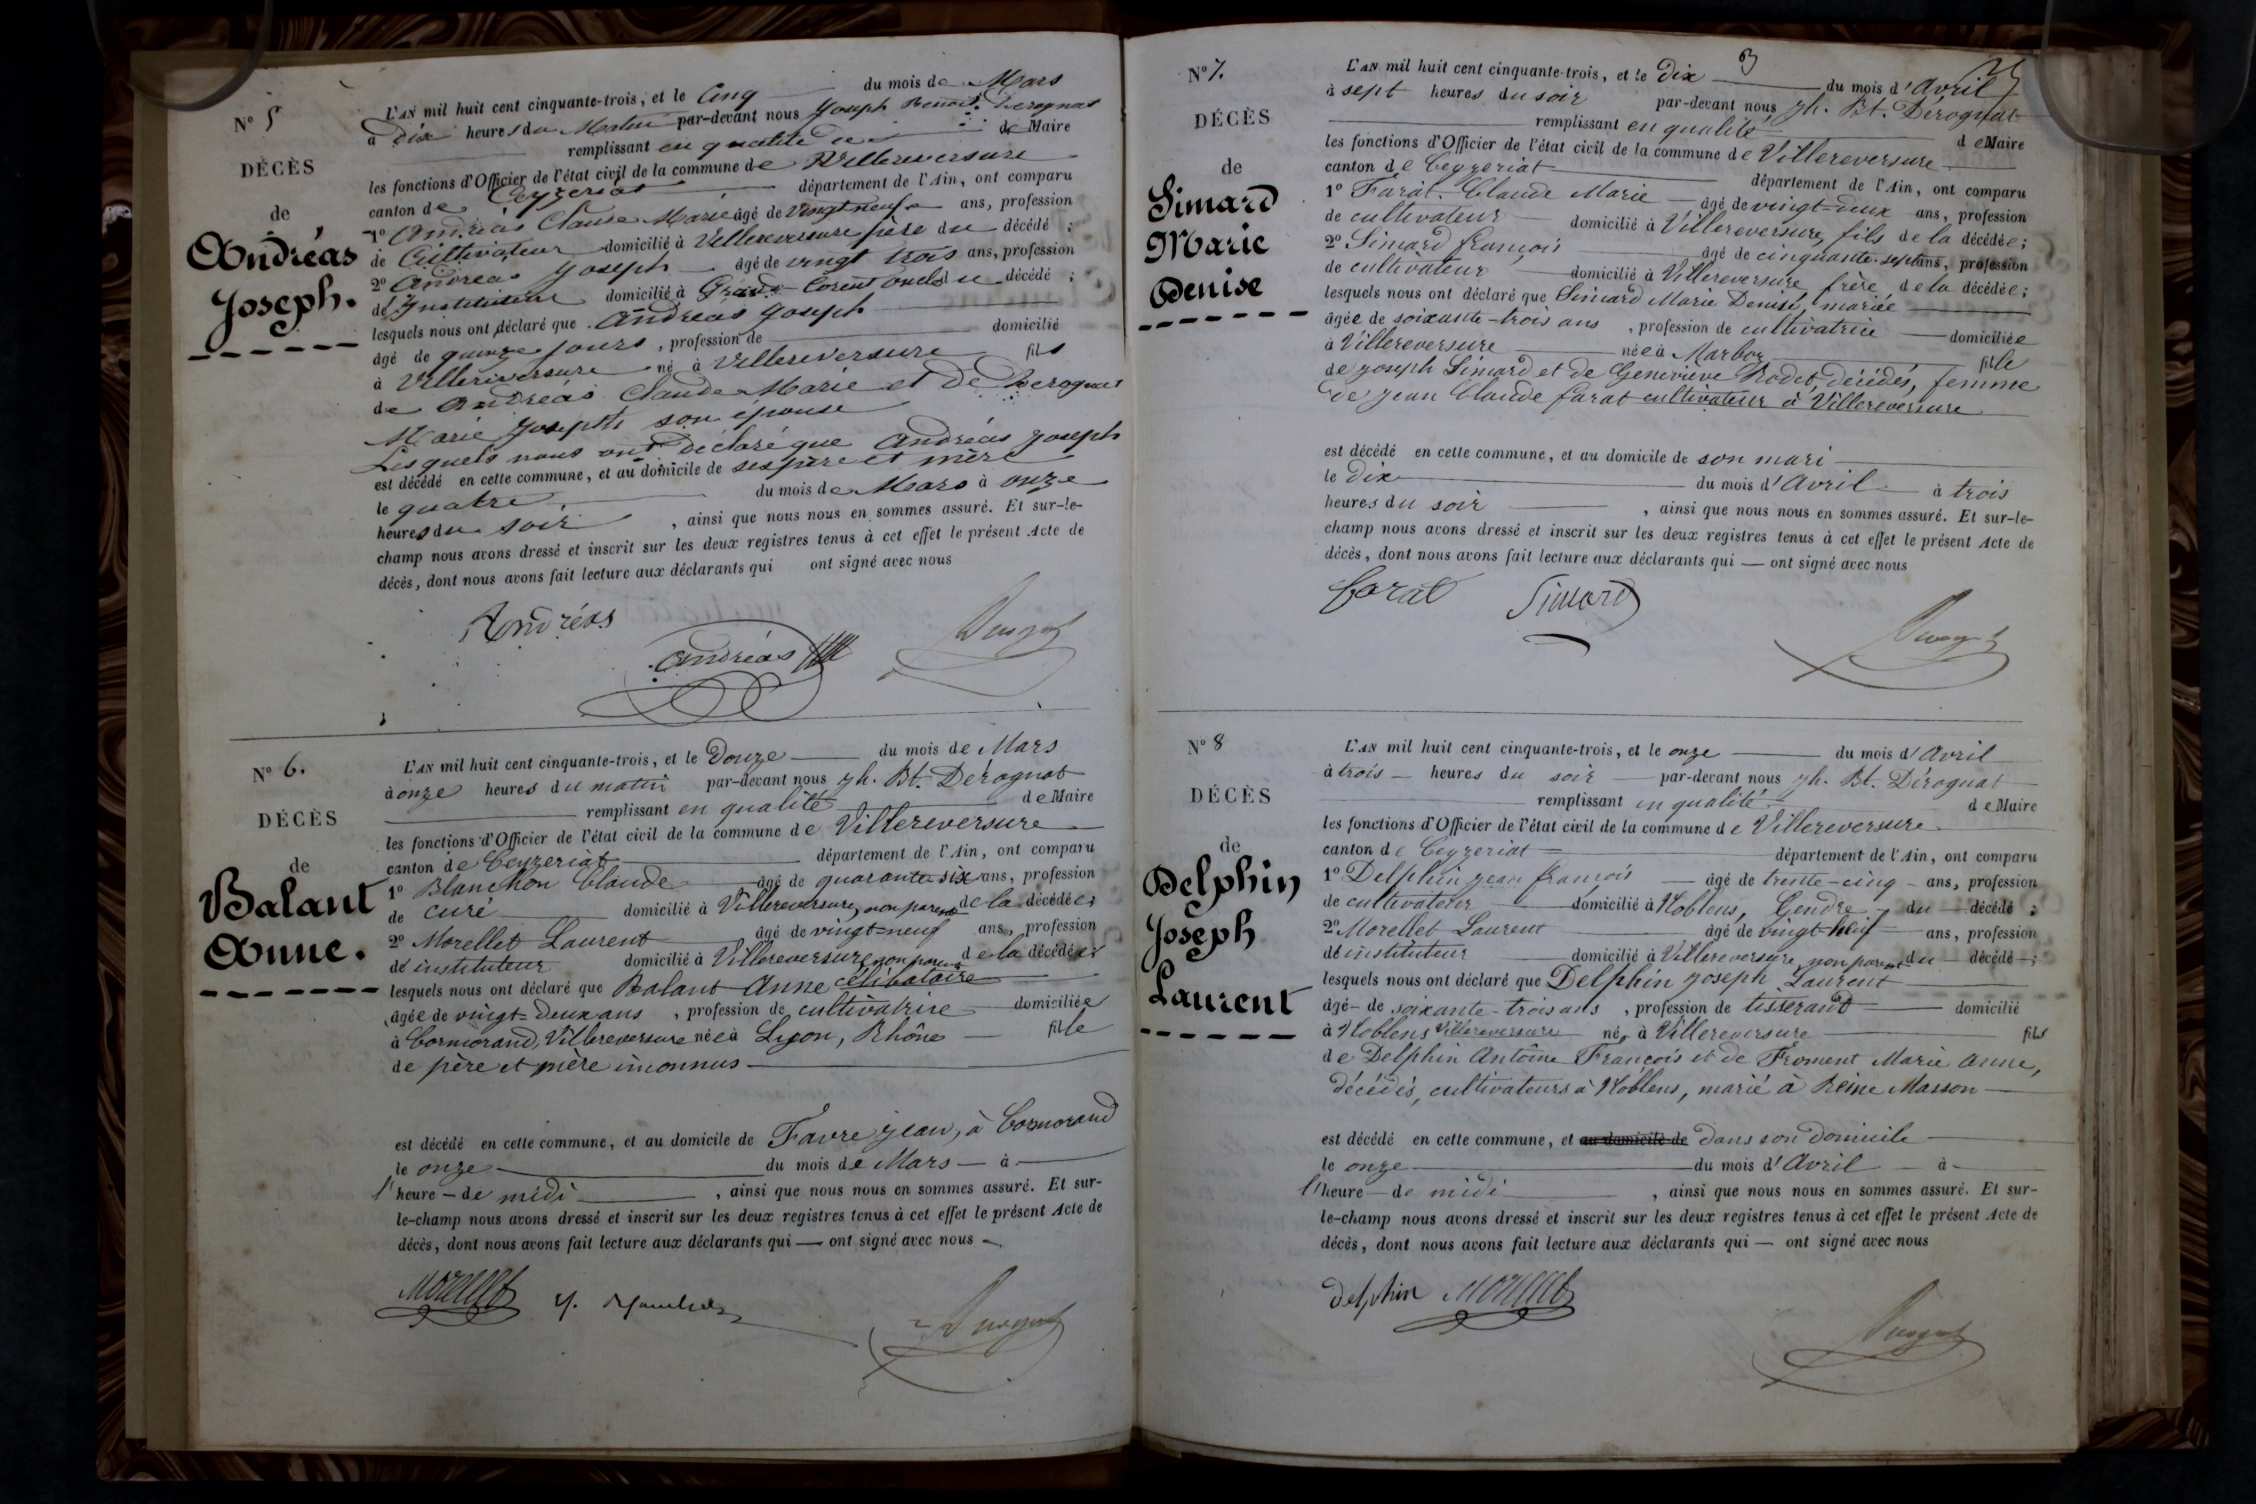 N° 5
DÉCÈS
de
Andréas
Joseph.
L'AN mil huit cent cinquante-trois, et le Cinq du mois de Mars
à dix heures du Matin par-devant nous Joseph Benoit Derognat
remplissant en qualité de de Maire
les fonctions d'Officier de l'état civil de la commune de Villereversure
canton de Ceyzeriat département de l'Ain, ont comparu
1° Andréas Claude Marie âgé de vingt neuf ans, profession
de Cultivateur domicilié à Villereversure père du décédé ;
2° Andreas Joseph âgé de vingt trois ans, profession
de Instituteur domicilié à Grand-Corent oncle du décédé ;
lesquels nous ont déclaré que Andreas Joseph
âgé de quinze jours, profession de domicilié
à Villereversure né à Villereversure fils
de Andréas Claude Marie et de Derognat
Marie Joseph son épouse
Lesquels nous ont déclaré que Andréas Joseph
est décédé en cette commune, et au domicile de ses père et mère
le quatre du mois de Mars à onze
heures du soir, ainsi que nous nous en sommes assuré. Et sur-le-
champ nous avons dressé et inscrit sur les deux registres tenus à cet effet le présent Acte de
décès, dont nous avons fait lecture aux déclarants qui ont signé avec nous
Andréas
Andréas
N° 6.
DÉCÈS
de
Balant
Anne.
L'AN mil huit cent cinquante-trois, et le Douze du mois de Mars
à onze heures du matin par-devant nous Jh. Bt. Dérognat
remplissant en qualité de Maire
les fonctions d'Officier de l'état civil de la commune de Villereversure
canton de Ceyzeriat département de l'Ain, ont comparu
1° Blanchon Claude âgé de quarante-six ans, profession
de curé domicilié à Villereversure, non parent de la décédée ;
2° Morellet Laurent âgé de vingt-neuf ans, profession
de instituteur domicilié à Villereversure non parent de la décédée ;
lesquels nous ont déclaré que Balant Anne célibataire
âgée de vingt-deux ans, profession de cultivatrice domiciliée
à Cormorand, Villereversure née à Lyon, Rhône fille
de père et mère inconnus
est décédé en cette commune, et au domicile de Favre Jean, à Cormorand
le onze du mois de Mars à
l'heure de midi, ainsi que nous nous en sommes assuré. Et sur-
le-champ nous avons dressé et inscrit sur les deux registres tenus à cet effet le présent Acte de
décès, dont nous avons fait lecture aux déclarants qui ont signé avec nous
Morellet
N° 7.
DÉCÈS
de
Simard
Marie
Denise
L'AN mil huit cent cinquante-trois, et le dix du mois d'Avril
à sept heures du soir par-devant nous Jh. Bt. Dérognat
remplissant en qualité de Maire
les fonctions d'Officier de l'état civil de la commune de Villereversure
canton de Ceyzeriat département de l'Ain, ont comparu
1° Farat Claude Marie âgé de vingt-deux ans, profession
de cultivateur domicilié à Villereversure, fils de la décédée ;
2° Simard françois âgé de cinquante-sept ans, profession
de cultivateur domicilié à Villereversure frère de la décédée ;
lesquels nous ont déclaré que Simard Marie Denise, mariée
âgée de soixante-trois ans, profession de cultivatrice domiciliée
à Villereversure née à Marboz fille
de Joseph Simard et de Geneviève Rodet, décédés, femme
de Jean Claude farat cultivateur à Villereversure
est décédé en cette commune, et au domicile de son mari
le Dix du mois d'Avril à trois
heures du soir, ainsi que nous nous en sommes assuré. Et sur-le-
champ nous avons dressé et inscrit sur les deux registres tenus à cet effet le présent Acte de
décès, dont nous avons fait lecture aux déclarants qui ont signé avec nous
farat Simard
N° 8
DÉCÈS
de
Delphin
Joseph
Laurent
L'AN mil huit cent cinquante-trois, et le onze du mois d'Avril
à trois heures du soir par-devant nous Jh. Bt. Dérognat
remplissant en qualité de Maire
les fonctions d'Officier de l'état civil de la commune de Villereversure
canton de Ceyzeriat département de l'Ain, ont comparu
1° Delphin Jean françois âgé de trente-cinq ans, profession
de cultivateur domicilié à Noblens, Gendre du décédé ;
2° Morellet Laurent âgé de vingt-neuf ans, profession
de instituteur domicilié à Villereversure non parent du décédé ;
lesquels nous ont déclaré que Delphin Joseph Laurent
âgé de soixante-trois ans, profession de tisserand domicilié
à Noblens Villereversure né à Villereversure fils
de Delphin Antoine François et de Froment Marie Anne,
décédés, cultivateurs à Noblens, marié à Reine Masson
est décédé en cette commune, et au domicile de dans son domicile
le onze du mois d'Avril à
l'heure de midi, ainsi que nous nous en sommes assuré. Et sur-
le-champ nous avons dressé et inscrit sur les deux registres tenus à cet effet le présent Acte de
décès, dont nous avons fait lecture aux déclarants qui ont signé avec nous
delphin Morellet